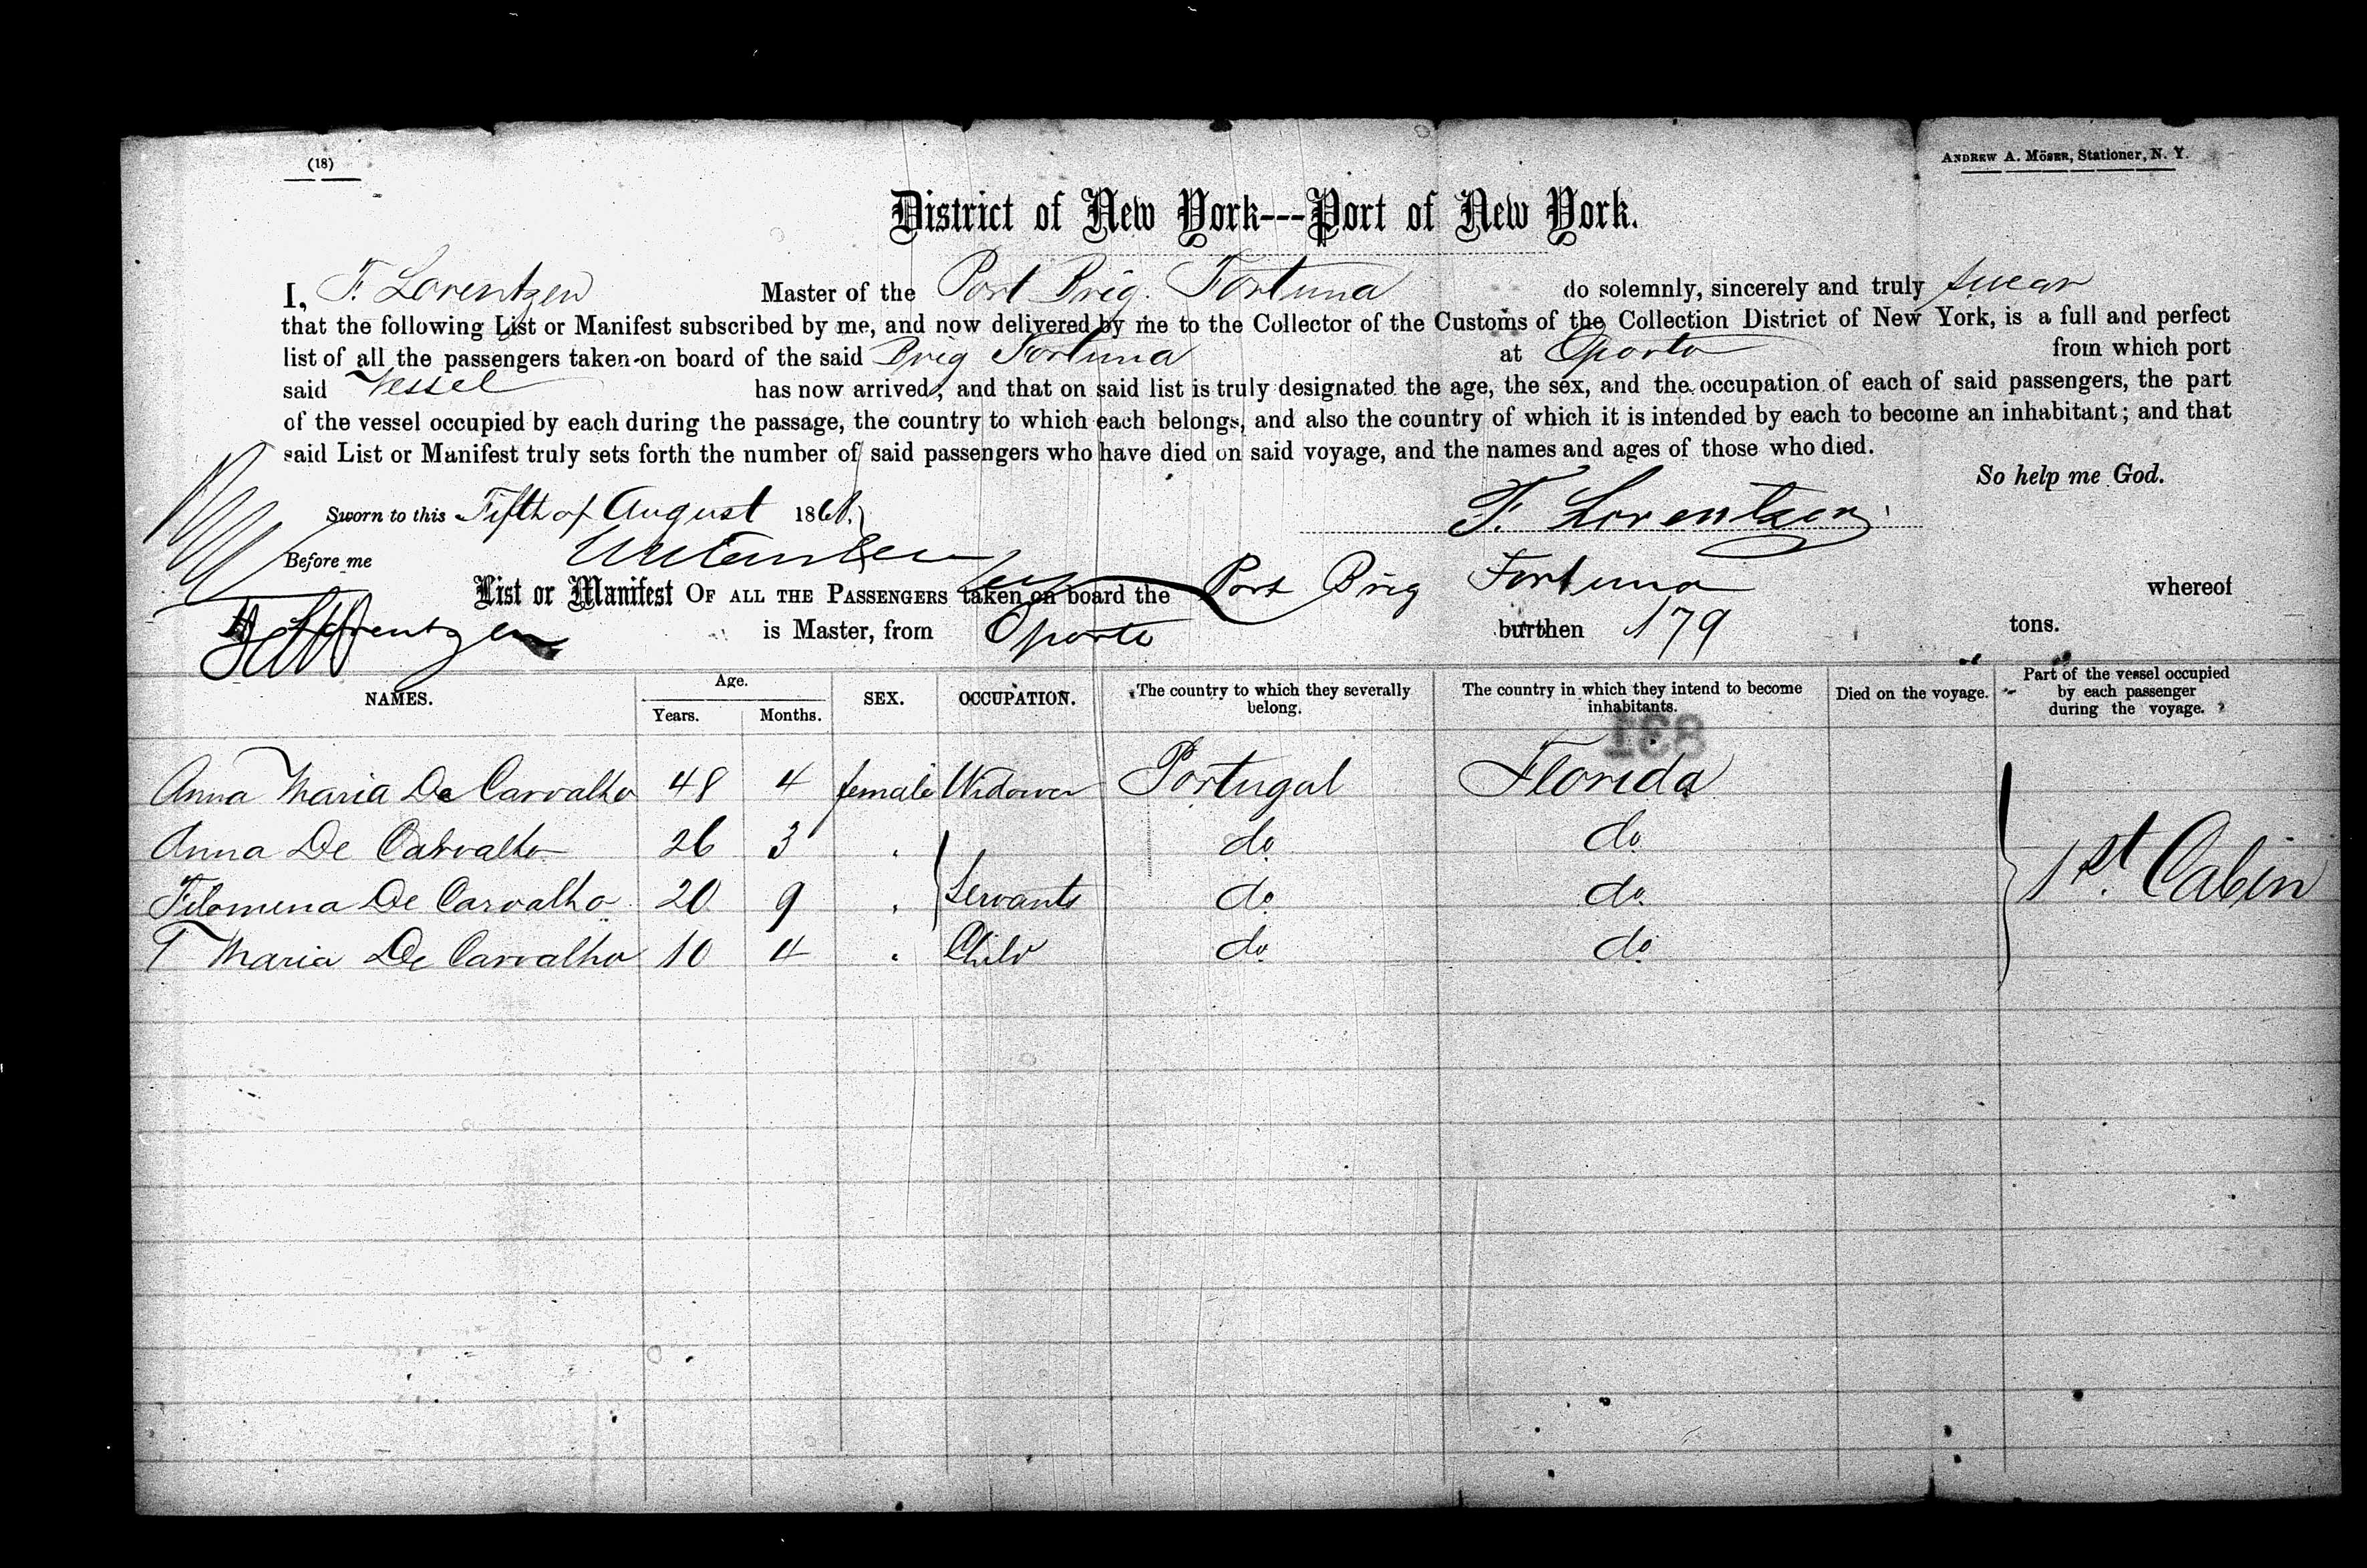 (18)
ANDREW A. MÖSER, Stationer, N. Y.
District of New York---Port of New York.
I, F. Lorentzen Master of the Port Brig. Fortuna do solemnly, sincerely and truly swear
that the following List or Manifest subscribed by me, and now delivered by me to the Collector of the Customs of the Collection District of New York, is a full and perfect
list of all the passengers taken on board of the said Brig Fortuna at Oporto from which port
said Vessel has now arrived, and that on said list is truly designated the age, the sex, and the occupation of each of said passengers, the part
of the vessel occupied by each during the passage, the country to which each belongs, and also the country of which it is intended by each to become an inhabitant; and that
said List or Manifest truly sets forth the number of said passengers who have died on said voyage, and the names and ages of those who died.
So help me God.
Sworn to this Fifth of August 1868. F. Lorentzen
Before me
List or Manifest OF ALL THE PASSENGERS taken on board the Port Brig Fortuna whereof
Lorentzen is Master, from Oporto burthen 179 tons.
NAMES. Age. Years. Months. SEX. OCCUPATION. The country to which they severally belong. The country in which they intend to become inhabitants. Died on the voyage. Part of the vessel occupied by each passenger during the voyage.
Anna Maria De Carvalho 48 4 female Widower Portugal Florida
Anna De Carvalho 26 3 " do do
Filomena De Carvalho 20 9 " Servants do do 1st. Cabin
T Maria De Carvalho 10 4 " Child do do